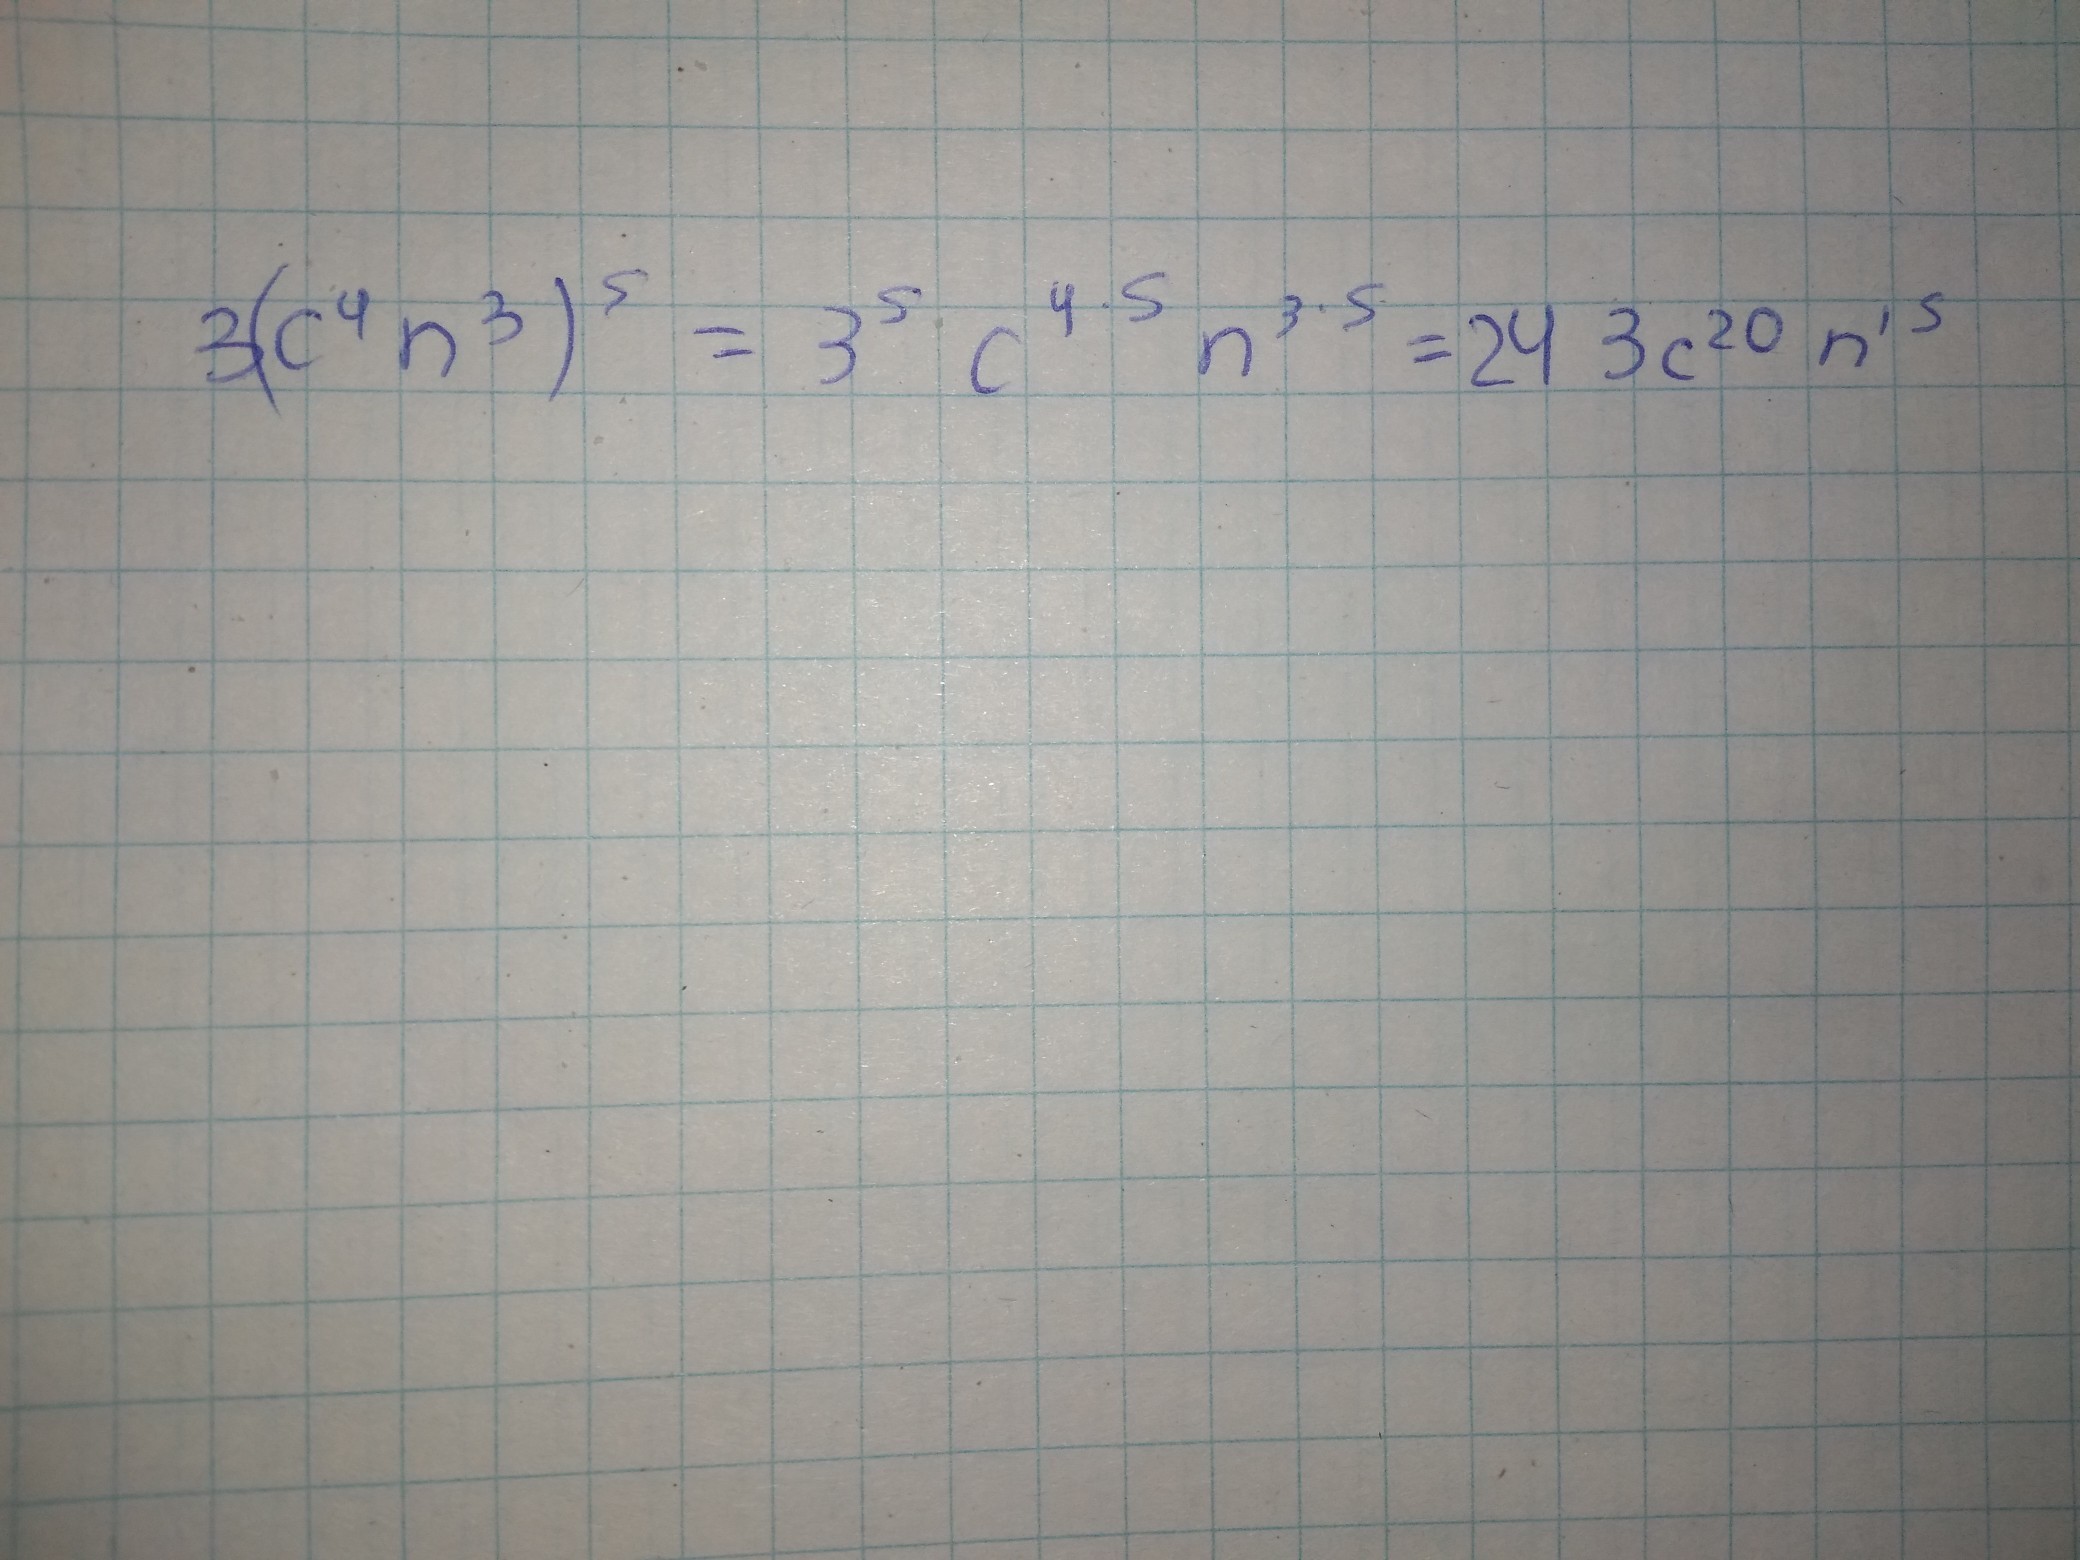 3(c⁴n³)⁵ = 3⁵ c⁴·⁵ n³·⁵ = 243c²⁰ n¹⁵